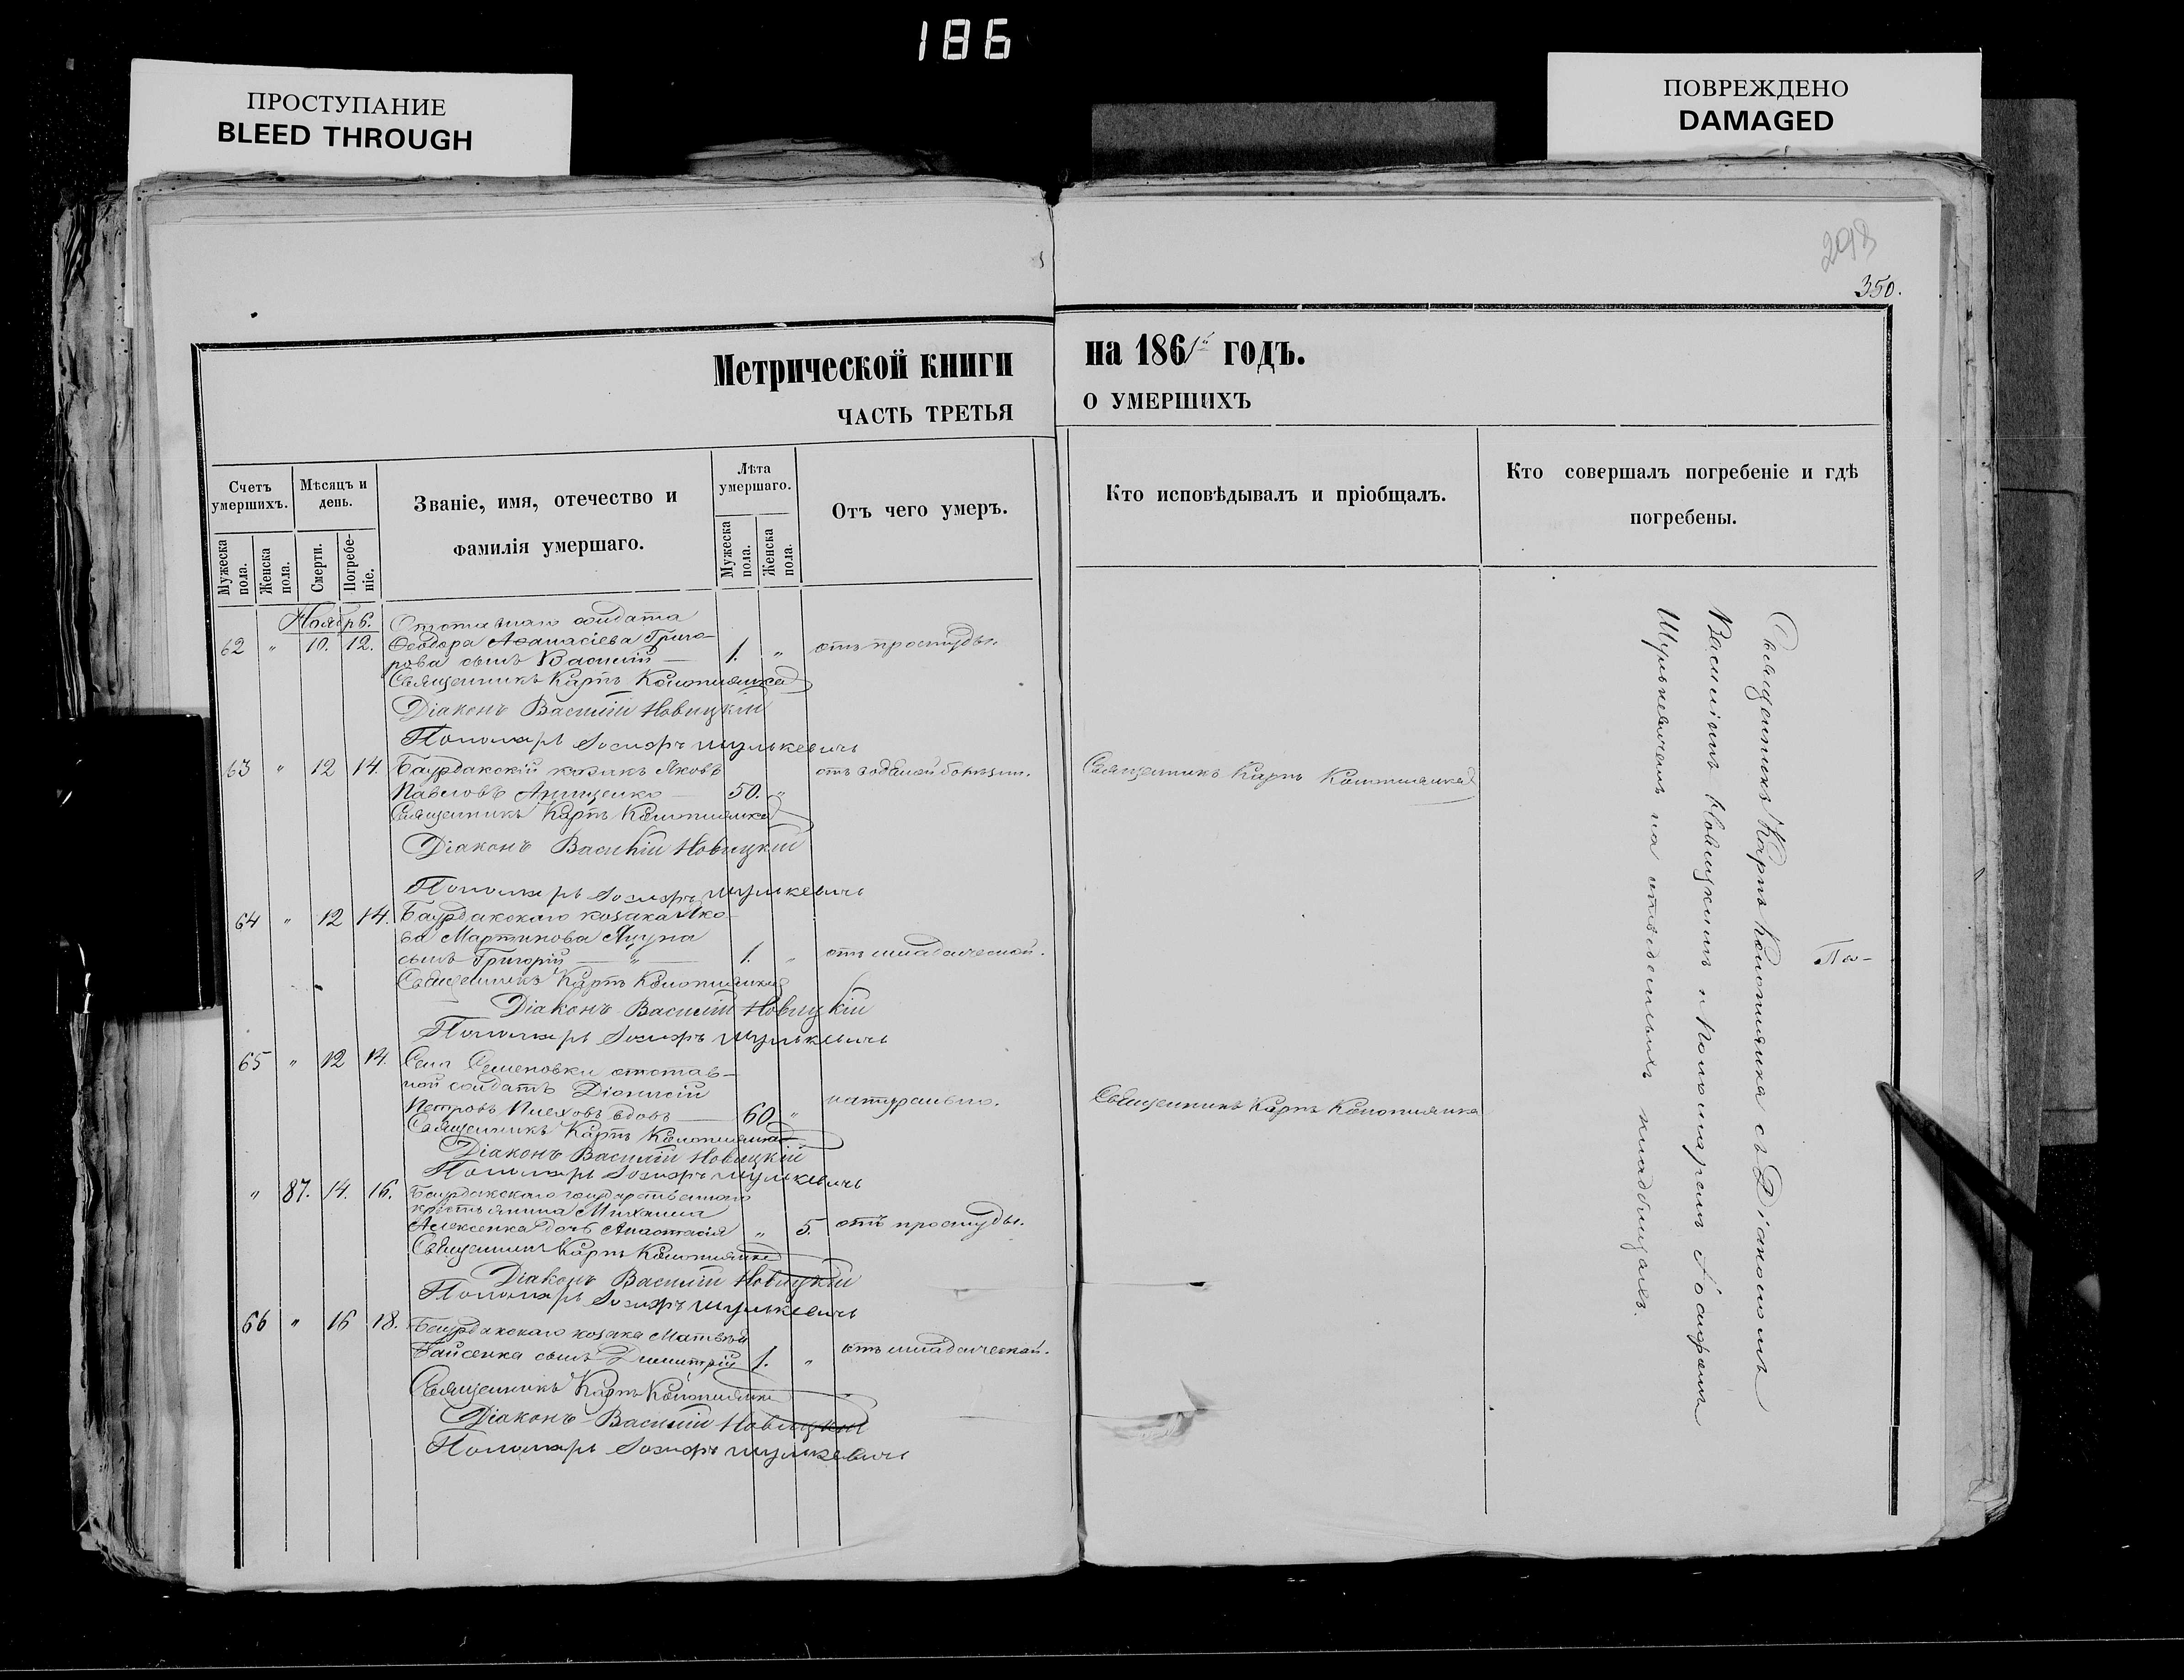 186
ПРОСТУПАНИЕ
BLEED THROUGH
ПОВРЕЖДЕНО
DAMAGED
293
350.
Метрической книги на 1861 годъ.
ЧАСТЬ ТРЕТЬЯ О УМЕРШИХЪ
Счетъ умершихъ.
Мужеска пола.
Женска пола.
Мѣсяцъ и день.
Смерти.
Погребеніе.
Званіе, имя, отечество и
фамилія умершаго.
Лѣта умершаго.
Мужеска пола.
Женска пола.
Отъ чего умеръ.
Кто исповѣдывалъ и пріобщалъ.
Кто совершалъ погребеніе и гдѣ
погребены.
Ноябрь.
Отставнаго солдата
62 " 10. 12. Ѳеодора Аѳанасіева Григо-
рова сынъ Василій 1. " отъ простуды.
Священникъ Карпъ
Діаконъ Василій Новицкій
Пономарь Іосифъ Шулькевичъ
63 " 12 14. козакъ Яковъ
Павловъ Анищенко 50. " отъ болѣзни.
Священникъ Карпъ
Священникъ Карпъ
Діаконъ Василій Новицкій
Пономарь Іосифъ Шулькевичъ
64 " 12 14. козака Яко-
ва Мартинова Яцуна
сынъ Григорій " 1. " отъ младенческой.
Священникъ Карпъ
Діаконъ Василій Новицкій
Пономарь Іосифъ Шулькевичъ
65 " 12 14. Села Семеновки отстав-
ной солдатъ Діонисій
Петровъ вдовъ 60 " натурально.
Священникъ Карпъ
Священникъ Карпъ
Діаконъ Василій Новицкій
Пономарь Іосифъ Шулькевичъ
" 87. 14. 16. государственнаго
крестьянина Михаила
Алексенка дочь Анастасія " 5. отъ простуды.
Священникъ Карпъ
Діаконъ Василій Новицкій
Пономарь Іосифъ Шулькевичъ
66 " 16 18. козака Матвѣя
сынъ Димитрій 1. " отъ младенческой.
Священникъ Карпъ
Діаконъ Василій Новицкій
Пономарь Іосифъ Шулькевичъ
По-
Священникъ Карпъ съ Діакономъ
Василіемъ Новицкимъ и Пономаремъ Іосифомъ
Шулькевичемъ на кладбищахъ.